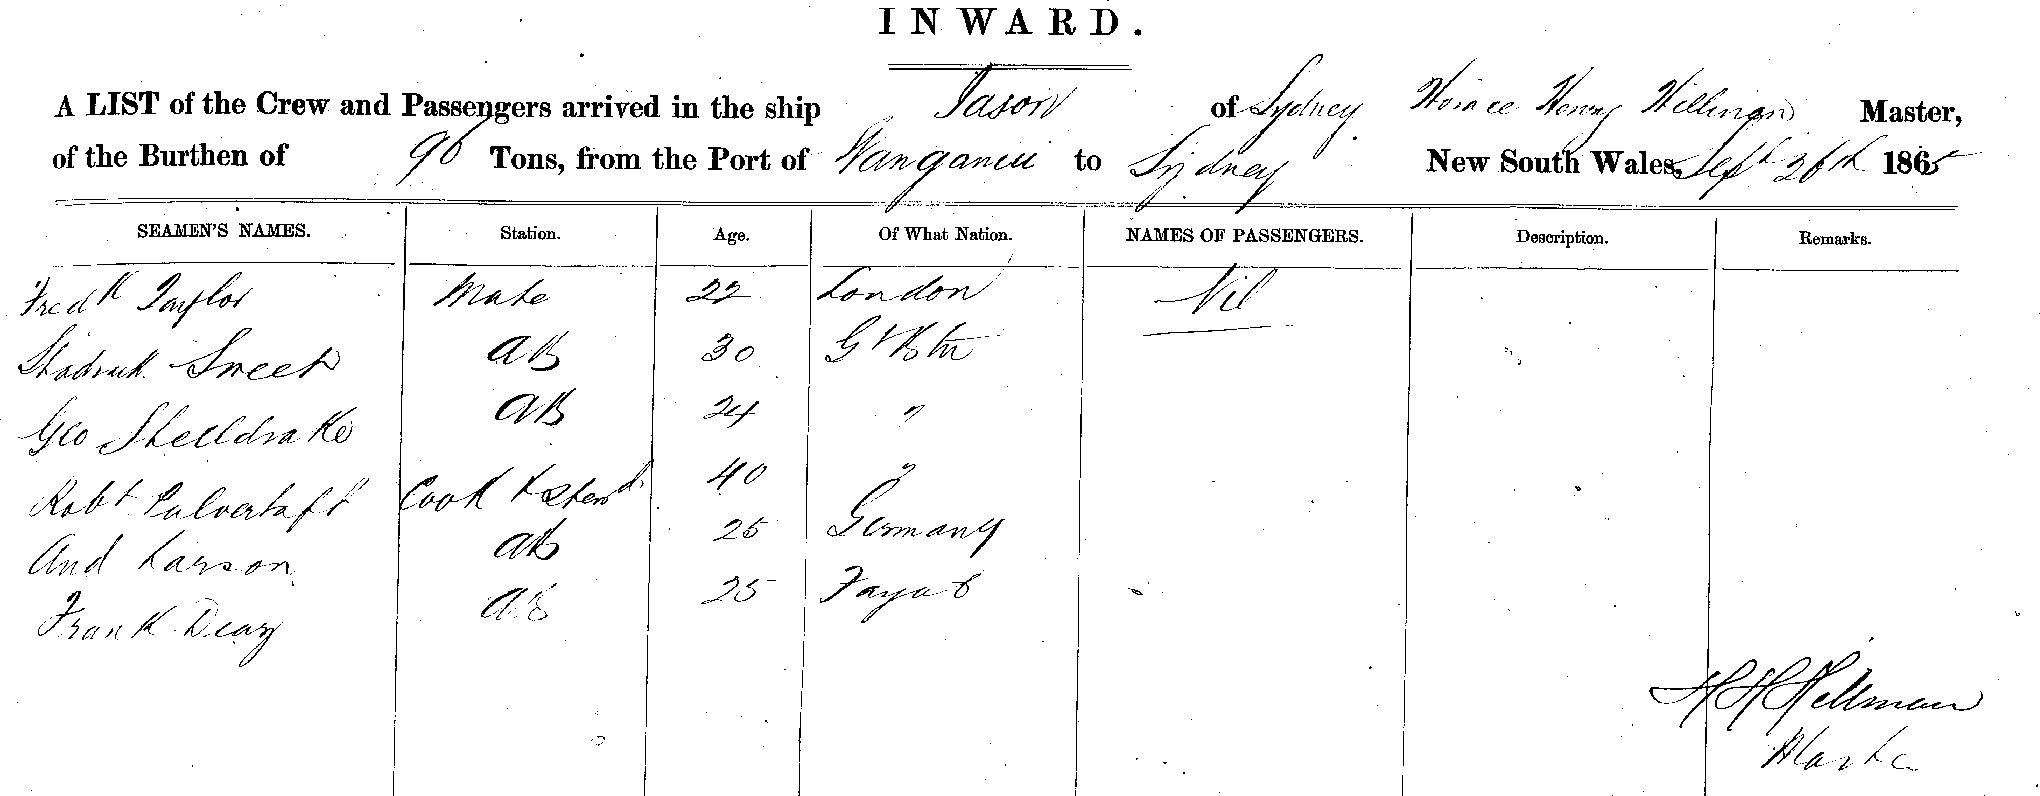 INWARD.
A LIST of the Crew and Passengers arrived in the ship Jason of Sydney Horace Henry Hillman Master,
of the Burthen of 96 Tons, from the Port of Wanganui to Sydney New South Wales, Sept 26th 1865
SEAMEN'S NAMES. Station. Age. Of What Nation. NAMES OF PASSENGERS. Description. Remarks.
Fredk Taylor Mate 22 London Nil
Shadrach Sweet AB 30 Gt Btn
Geo Shelldrake AB 24 "
Robt Pulvertaft Cook & Stewd 40 "
And Larson AB 25 Germany
Frank Deay AB 25 Fayal
H H Hillman
Master